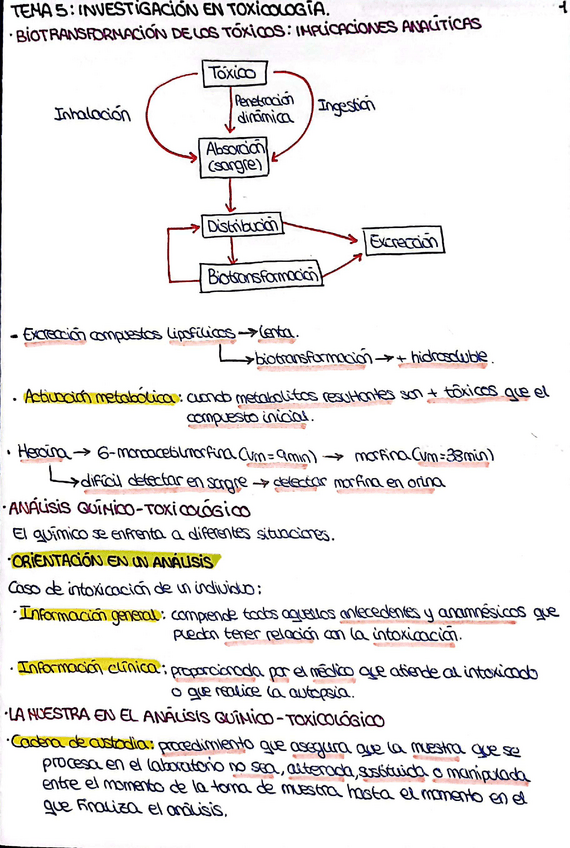 TEMA 5: INVESTIGACIÓN EN TOXICOLOGÍA.
1
· BIOTRANSFORMACIÓN DE LOS TÓXICOS: IMPLICACIONES ANALÍTICAS
Tóxico
Inhalación
Penetración
dinámica
Ingestión
Absorción
(sangre)
Distribución
Excreción
Biotransformación
- Excreción compuestos lipofílicos → lenta.
→ biotransformación → + hidrosoluble.
· Activación metabólica: cuando metabolitos resultantes son + tóxicos que el
compuesto inicial.
· Heroína → 6-monoacetilmorfina (Vm=9min) → morfina (Vm=38min)
→ difícil detectar en sangre → detectar morfina en orina.
· ANÁLISIS QUÍMICO-TOXICOLÓGICO
El químico se enfrenta a diferentes situaciones.
· ORIENTACIÓN EN UN ANÁLISIS
Caso de intoxicación de un individuo:
· Información general: comprende todos aquellos antecedentes y anamnésicos que
puedan tener relación con la intoxicación.
· Información clínica: proporcionada por el médico que atiende al intoxicado
o que realice la autopsia.
· LA MUESTRA EN EL ANÁLISIS QUÍMICO-TOXICOLÓGICO
· Cadena de custodia: procedimiento que asegura que la muestra que se
procesa en el laboratorio no sea, alterada, sustituida o manipulada
entre el momento de la toma de muestra hasta el momento en el
que finaliza el análisis.